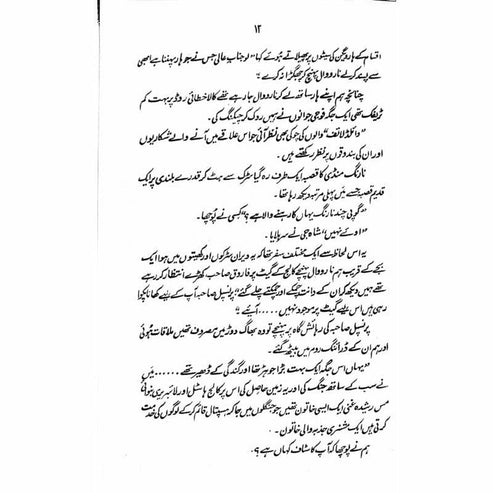 ۱۲
اقسام کے ہار ویگن کی سیٹوں پر پھیلاتے ہوئے کہا "لو جناب عالی جس نے جو ہار پہننا ہے ابھی
سے پسند کر لے نارووال پہنچ کر جھگڑا نہ کرے"۔
چنانچہ ہم اپنے ہار ساتھ لے کر نارووال جا رہے تھے کالا خطائی روڈ پر بہت کم
ٹریفک تھی ایک جگہ فوجی جوانوں نے ہمیں روک کر چیکنگ کی۔
"وائلڈ لائف" والوں کی چوکی بھی نظر آئی جو اس علاقے میں آنے والے شکاریوں
اور ان کی بندوقوں پر نظر رکھتے ہیں۔
نارنگ منڈی کا قصبہ ایک طرف رہ گیا سڑک سے ہٹ کر قدرے بلندی پر ایک
قدیم قصبہ جسے میں پہلی مرتبہ دیکھ رہا تھا۔
"گوپی چند نارنگ یہاں کا رہنے والا ہے؟" کسی نے پوچھا۔
"اوئے نہیں" شاہ جی نے سر ہلایا۔
یہ اس لحاظ سے ایک مختلف سفر تھا کہ یہ ویران سڑکوں اور کھیتوں میں ہوا ایک
بجے کے قریب ہم نارووال پہنچے کالج کے گیٹ پر فاروق صاحب کھڑے انتظار کر رہے
تھے ہمیں دیکھ کر ان کے دانت چمکے اور چمکتے چلے گئے "پرنسپل صاحبہ آپ کے لیے کھانا پکوا
رہی ہیں اس لیے گیٹ پر موجود نہیں ..... آیئے"۔
پرنسپل صاحبہ کی رہائش گاہ پر پہنچے تو وہ بھاگ دوڑ میں مصروف تھیں ملاقات ہوئی
اور ہم ان کے ڈرائنگ روم میں بیٹھ گئے۔
"یہاں اس جگہ ایک بہت بڑا جوہڑ تھا اور گندگی کے ڈھیر تھے ...... میں
نے سب کے ساتھ جنگ کی اور یہ زمین حاصل کی اس پر کالج ہاسٹل اور لائبریری بنوائی
مس رشیدہ غنی ایک ایسی خاتون تھیں جو جنگلوں میں جا کر ہسپتال قائم کر کے لوگوں کی خدمت
کرتی ہیں ایک مشنری جذبہ والی خاتون۔
ہم نے پوچھا کہ آپ کا سٹاف کہاں ہے؟۔